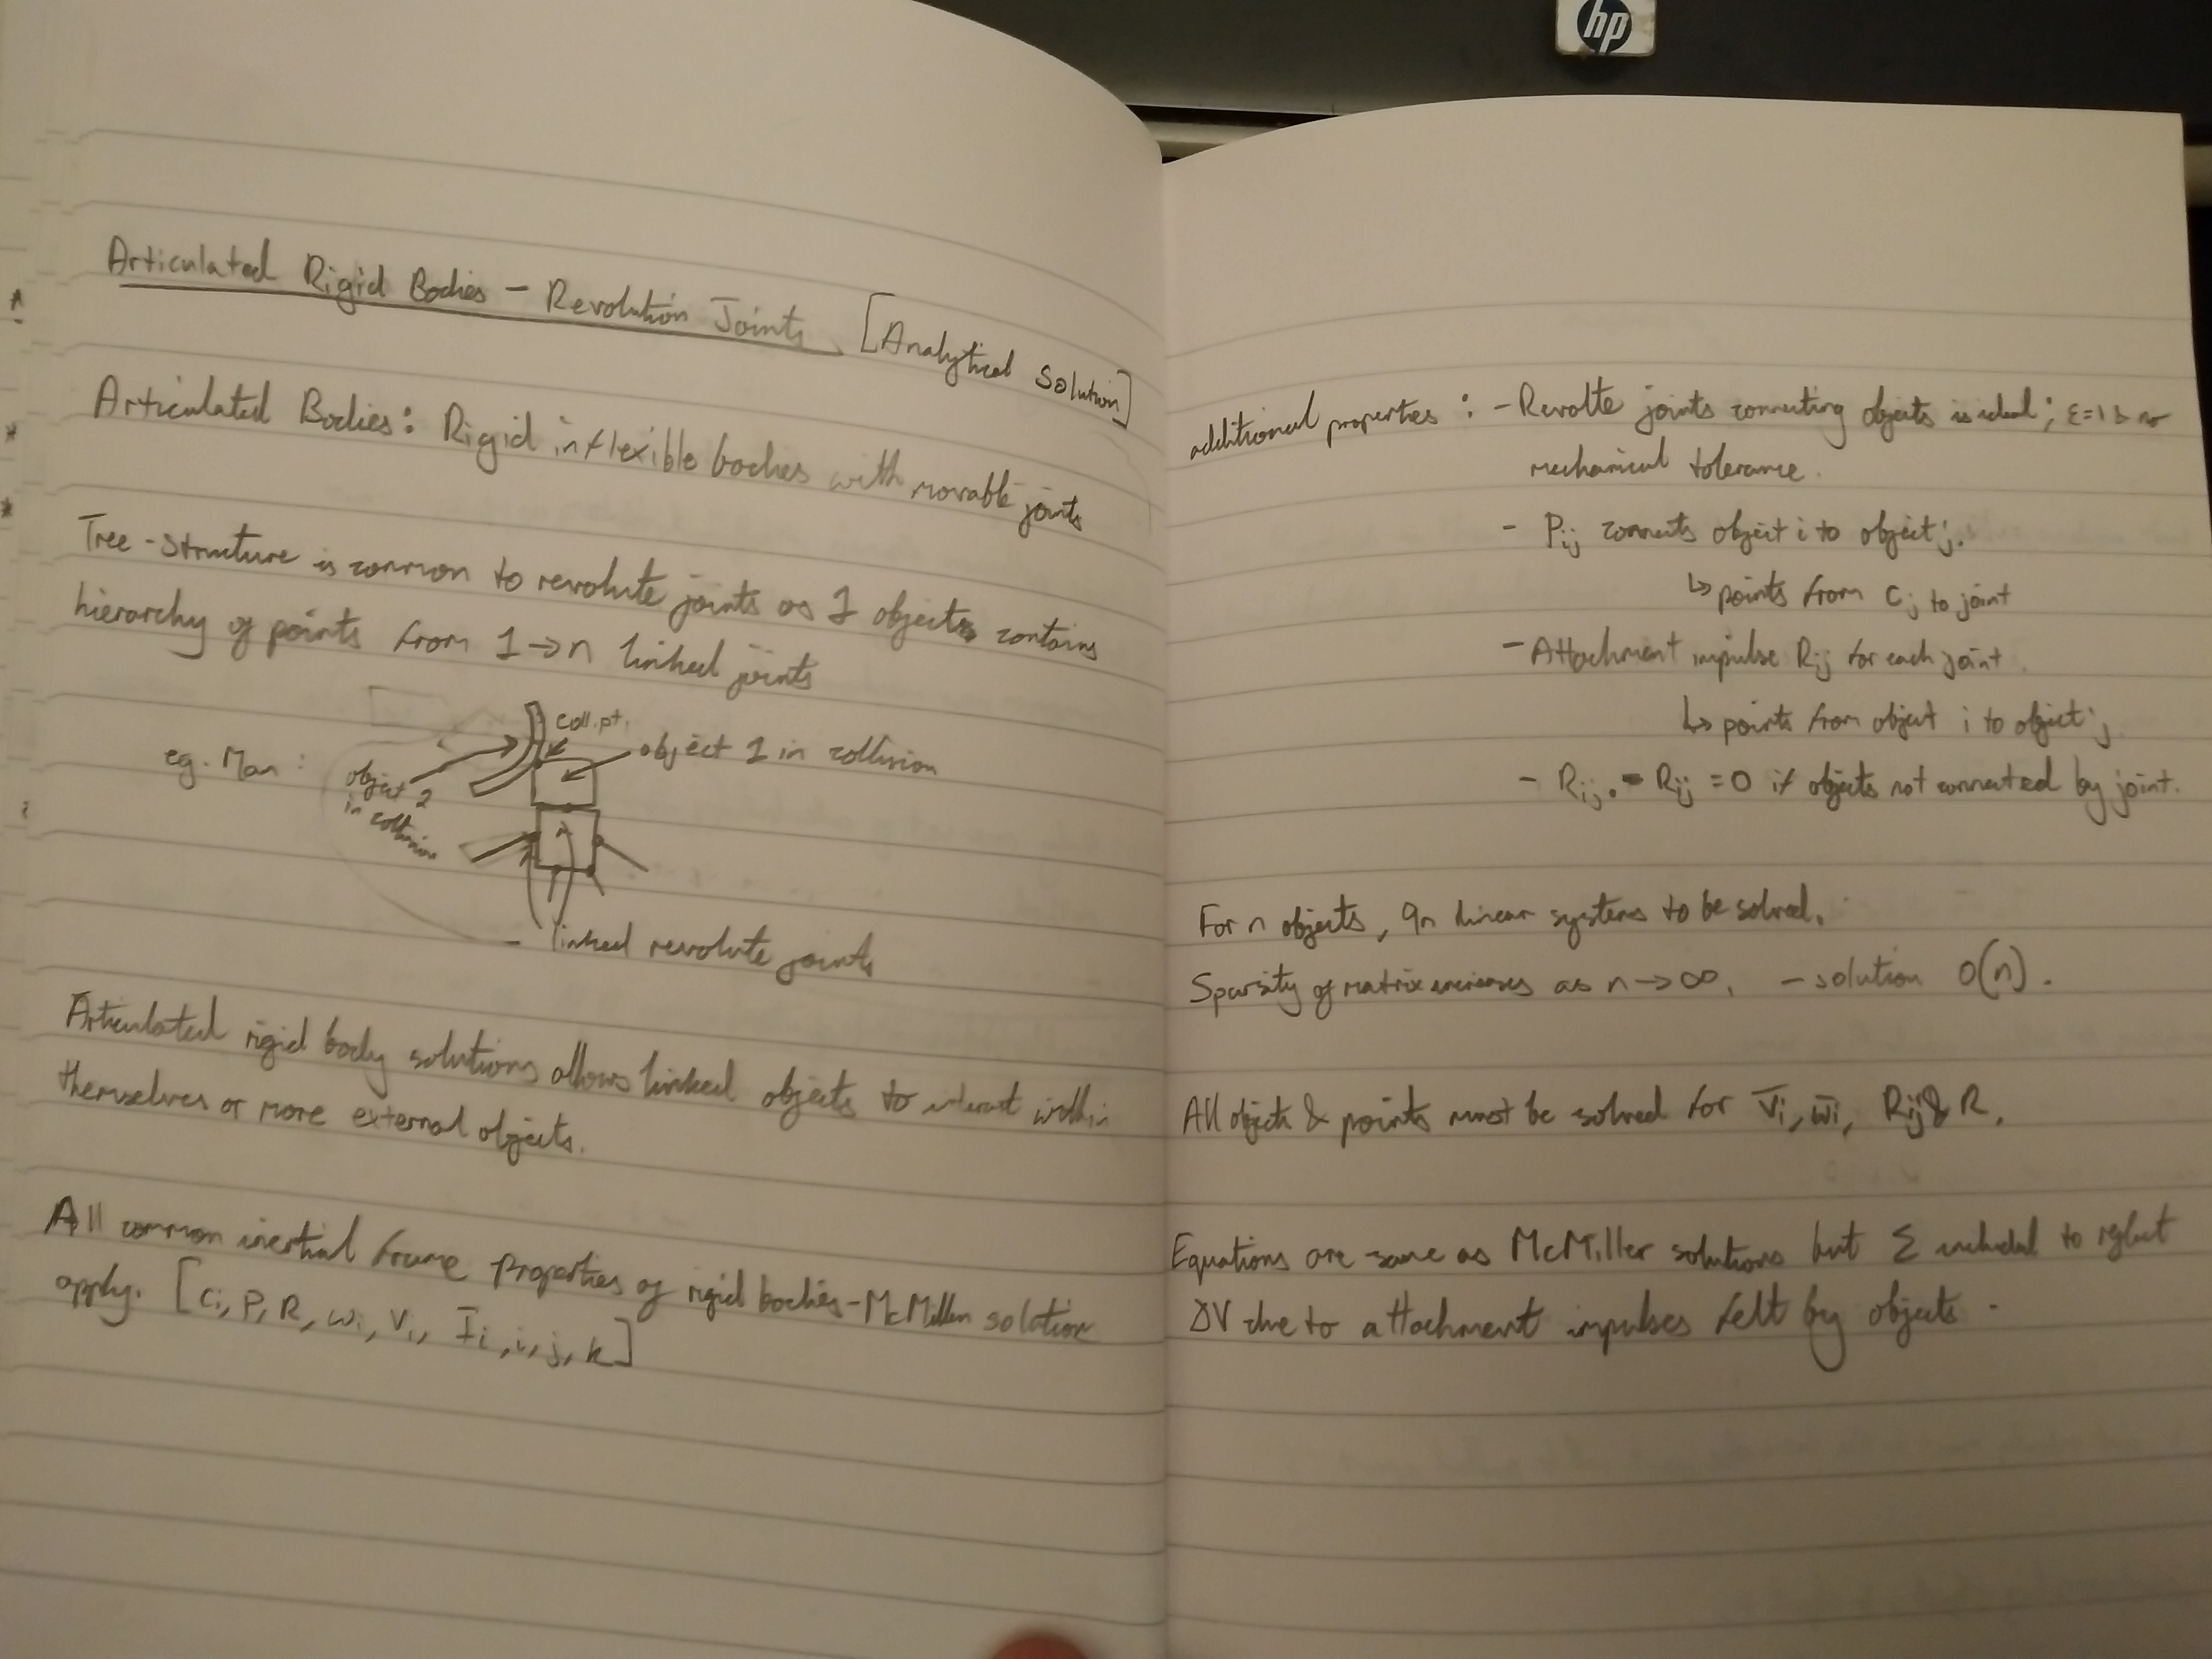 hp
Articulated Rigid Bodies - Revolution Joints [Analytical Solution]
Articulated Bodies: Rigid inflexible bodies with movable joints
Tree-structure is common to revolute joints as 1 objects contains
hierarchy of points from 1→n linked joints
eg. Man :
coll. pt.
object 1 in collision
object 2
in collision
linked revolute joints
Articulated rigid body solutions allows linked objects to interact within
themselves or more external objects.
All common inertial frame properties of rigid bodies - McMillen solution
apply. [Ci, P, R, ωi, Vi, Ii, i, j, k]
additional properties : - Revolte joints connecting objects is ideal; ε=1 & no
mechanical tolerance.
- Pij connects object i to object j.
↳ points from Cj to joint
- Attachment impulse Rij for each joint
↳ points from object i to object j
- Rij = Rij = 0 if objects not connected by joint.
For n objects, 9n linear systems to be solved.
Sparsity of matrix increases as n→∞. - solution O(n).
All objects & points must be solved for V̄i, ω̄i, Rij & R.
Equations are same as McMiller solutions but Σ included to reflect
ΔV due to attachment impulses felt by objects.